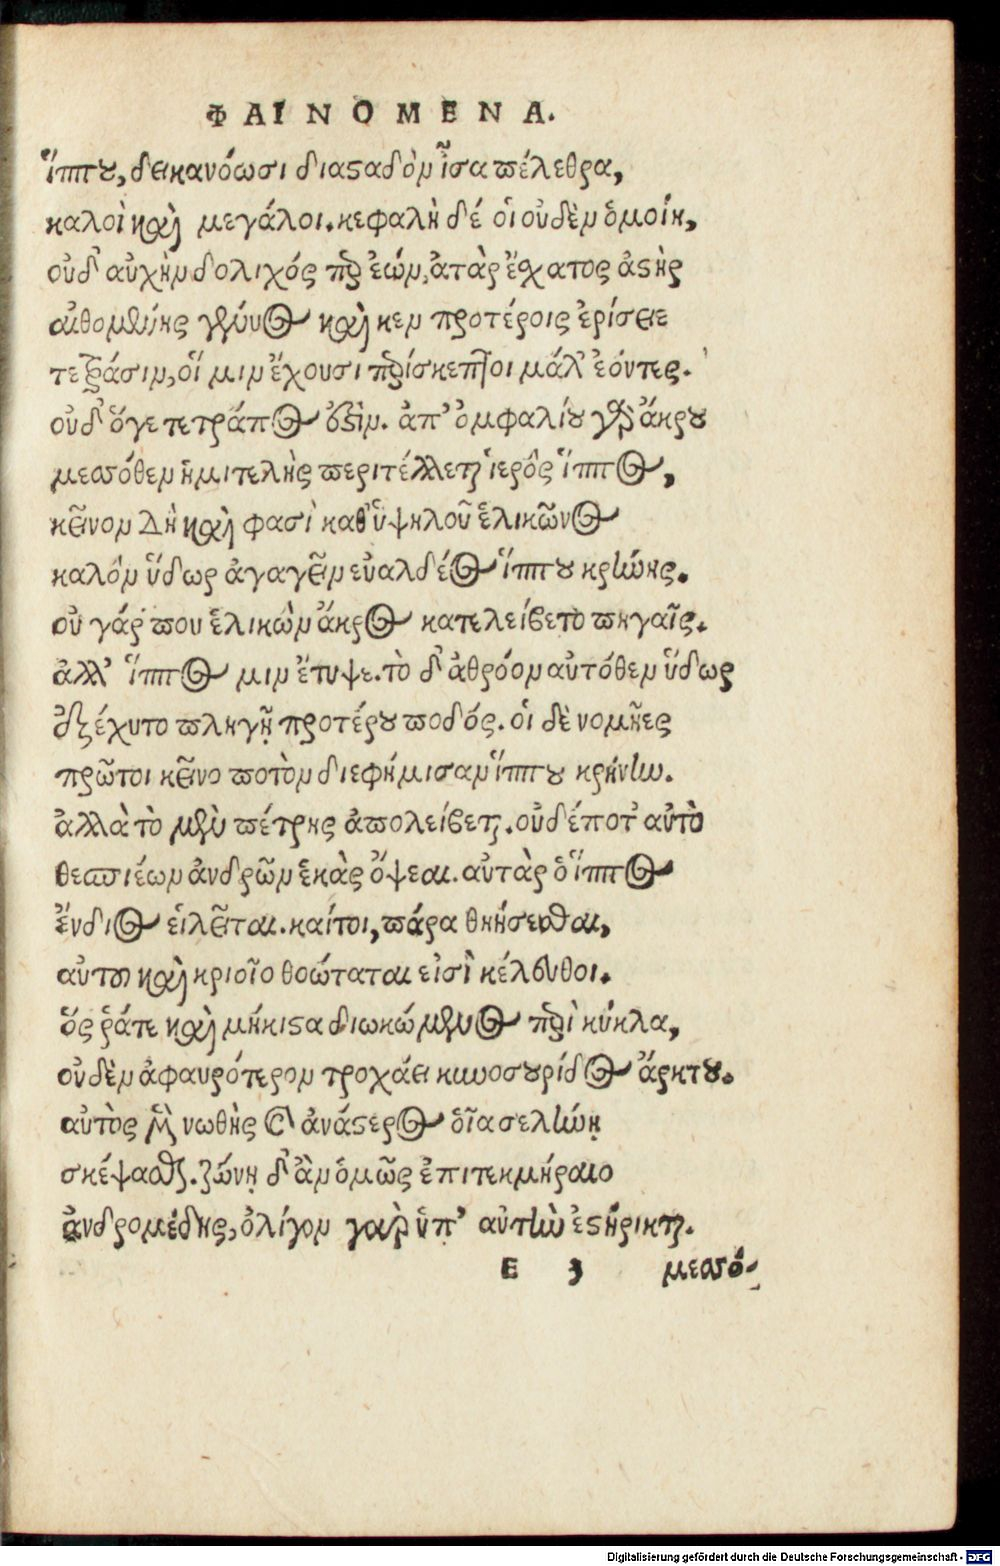 ΦΑΙΝΟΜΕΝΑ.
ἵππου, δεικανόωσι διασταδὸν ἶσα πέλεθρα,
καλοὶ καὶ μεγάλοι. κεφαλὴ δέ οἱ οὐδὲν ὁμοίη,
οὐδ' αὐχὴν δολιχός περ ἐών, ἀτὰρ ἔσχατος ἀστὴρ
αἰθομένης γένυος καὶ κεν προτέροις ἐρίσειε
τετράσιν, οἵ μιν ἔχουσι περίσκεπτοι μάλ' ἐόντες.
οὐδ' ὅγε τετράπος ἐστὶν. ἀπ' ὀμφαλίου γὰρ ἄκρου
μεσσόθεν ἡμιτελὴς περιτέλλεται ἱερὸς ἵππος,
κεῖνον Δὴ καὶ φασὶ καθ' ὑψηλοῦ ἑλικῶνος
καλὸν ὕδωρ ἀγαγεῖν εὐαλδέος ἵππου κρήνης.
οὐ γάρ που ἑλικὼν ἄκρος κατελείβετο πηγαῖς.
ἀλλ' ἵππος μιν ἔτυψε. τὸ δ' ἀθρόον αὐτόθεν ὕδωρ
ἐξέχυτο πληγῇ προτέρου ποδός. οἱ δὲ νομῆες
πρῶτοι κεῖνο ποτὸν διεφήμισαν ἵππου κρήνην.
ἀλλὰ τὸ μὲν πέτρης ἀπολείβεται. οὐδέποτ' αὐτὸ
θεσπιέων ἀνδρῶν ἑκὰς ὄψεαι. αὐτὰρ ὁ ἵππος
ἔνδιος εἱλεῖται. καίτοι, πάρα θηήσεσθαι,
αὐτοῦ καὶ κριοῖο θοώταται εἰσὶ κέλευθοι.
ὅς ῥάτε καὶ μήκιστα διωκόμενος περὶ κύκλα,
οὐδὲν ἀφαυρότερον τροχάει κυνοσουρίδος ἄρκτου.
αὐτὸς μὲν νωθὴς καὶ ἀνάστερος οἷα σελήνῃ
σκέψασθαι. ζώνῃ δ' ἂν ὁμῶς ἐπιτεκμήραιο
ἀνδρομέδης, ὀλίγον γὰρ ὑπ' αὐτὴν ἐστήρικται.
E 3 μεσσό-
Digitalisierung gefördert durch die Deutsche Forschungsgemeinschaft - DFG